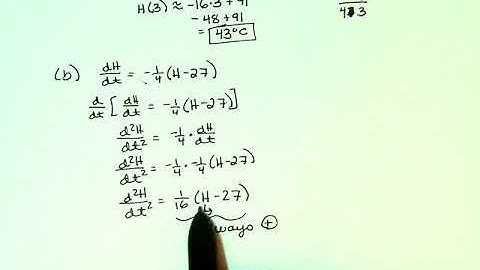 H(3) ≈ -16·3 + 91
-48 + 91
= 43°C
(b) dH/dt = -1/4(H-27)
d/dt[dH/dt = -1/4(H-27)]
d²H/dt² = -1/4 · dH/dt
d²H/dt² = -1/4 · -1/4(H-27)
d²H/dt² = 1/16(H-27)